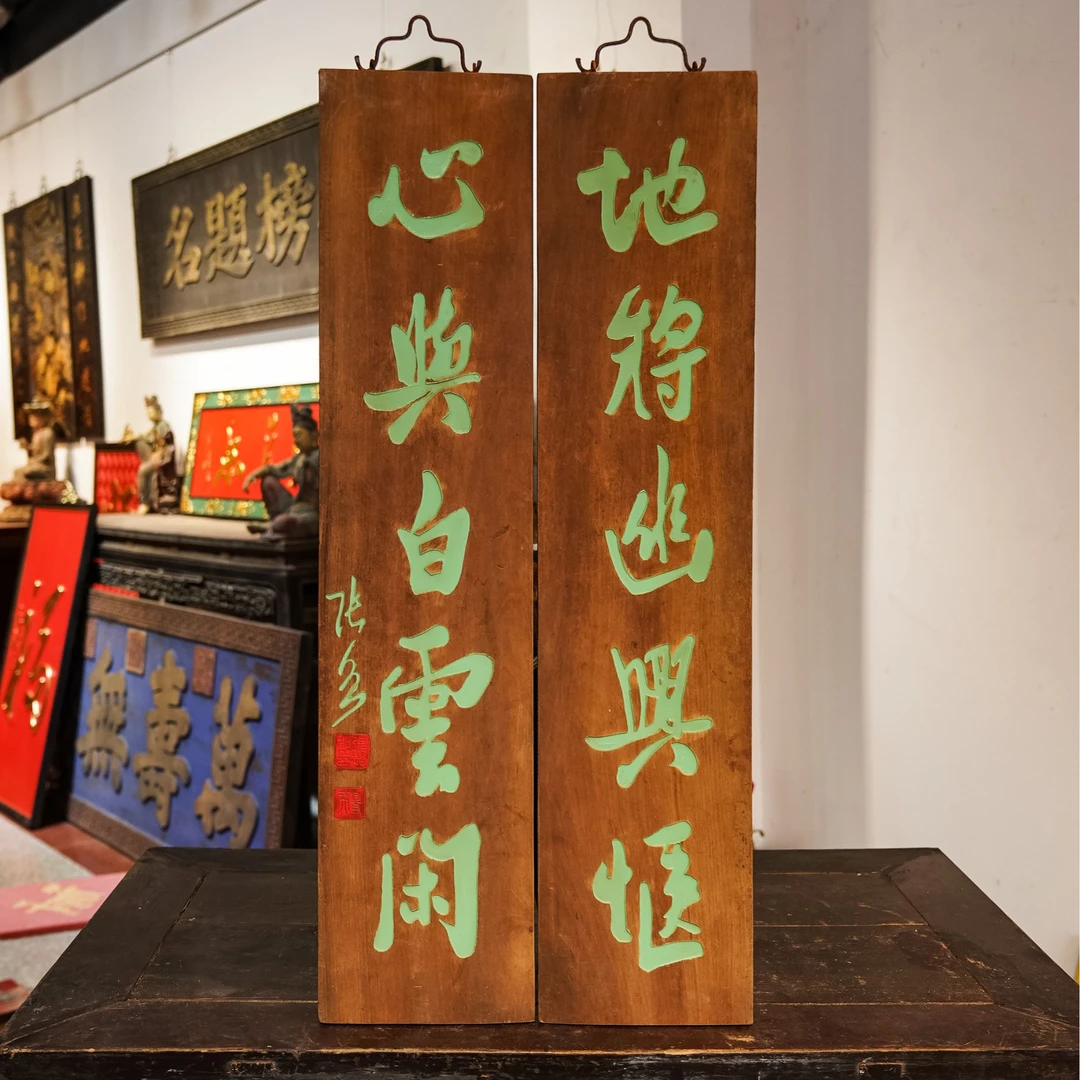 地將幽興愜
心與白雲閑
榜題名
萬壽無